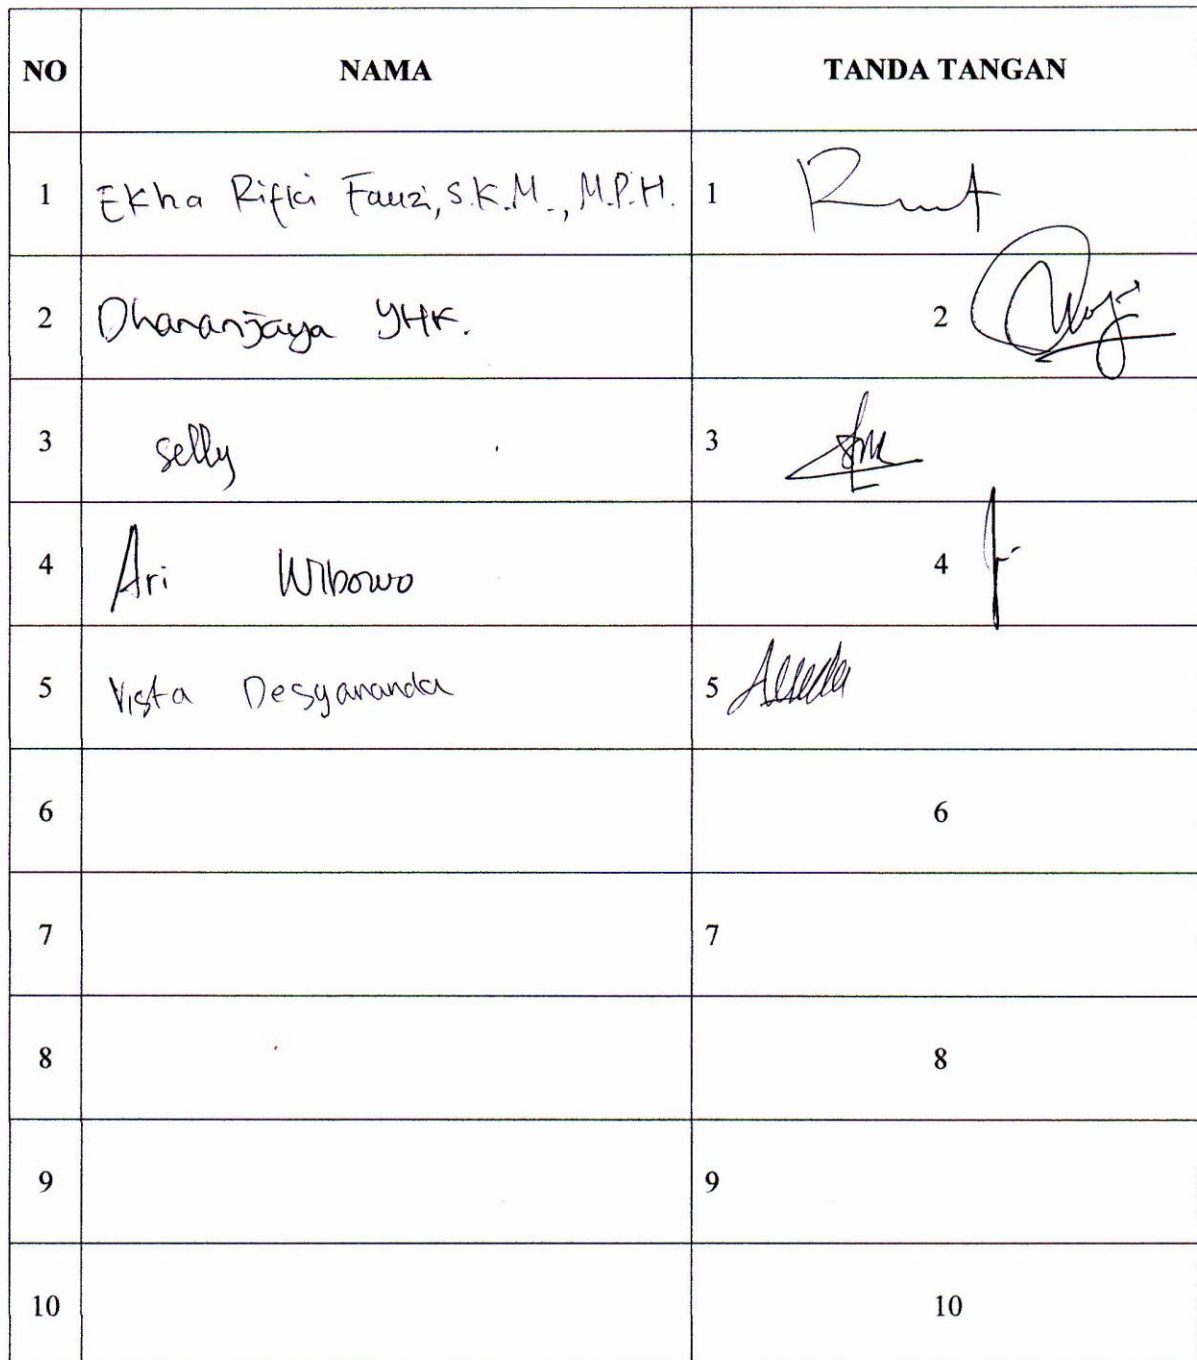 NO NAMA TANDA TANGAN
1 Ekha Rifki Fauzi, S.K.M., M.P.H. 1
2 Dhananjaya YHK. 2
3 Selly 3
4 Ari Wibowo 4
5 Vista Desyananda 5
6 6
7 7
8 8
9 9
10 10